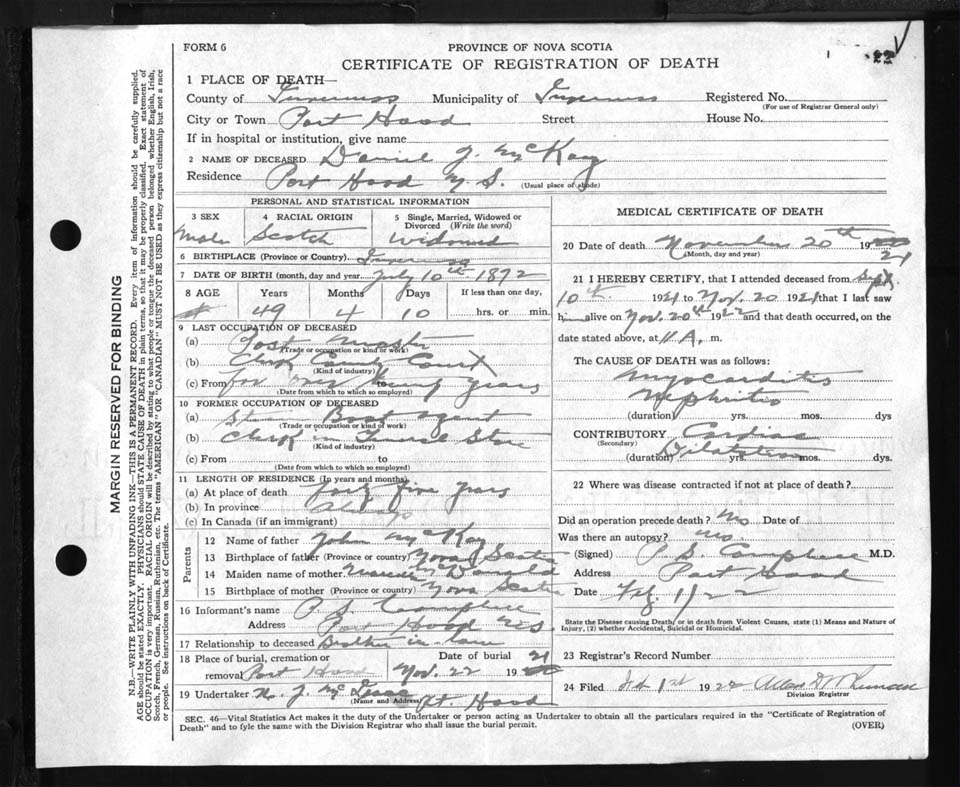 FORM 6
PROVINCE OF NOVA SCOTIA
CERTIFICATE OF REGISTRATION OF DEATH
22
MARGIN RESERVED FOR BINDING
N.B.—WRITE PLAINLY WITH UNFADING INK—THIS IS A PERMANENT RECORD. Every item of information should be carefully supplied.
AGE should be stated EXACTLY. PHYSICIANS should STATE CAUSE OF DEATH in plain terms, so that it may be properly classified. Exact statement of
OCCUPATION is very important. RACIAL ORIGIN will be described by stating to what people or tongue the deceased person belonged whether English, Irish,
Scotch, French, German, Russian, Ruthenian, etc. The terms "AMERICAN" OR "CANADIAN" MUST NOT BE USED as they express citizenship but not a race
or people. See instructions on back of Certificate.
1 PLACE OF DEATH—
County of Inverness Municipality of Inverness Registered No.
(For use of Registrar General only)
City or Town Port Hood Street House No.
If in hospital or institution, give name
2 NAME OF DECEASED Daniel J. McKay
Residence Port Hood N.S. (Usual place of abode)
PERSONAL AND STATISTICAL INFORMATION
3 SEX Male
4 RACIAL ORIGIN Scotch
5 Single, Married, Widowed or Divorced (Write the word) Widowed
6 BIRTHPLACE (Province or Country) Inverness
7 DATE OF BIRTH (month, day and year) July 10th 1872
8 AGE Years Months Days If less than one day,
49 4 10 hrs. or min.
9 LAST OCCUPATION OF DECEASED
(a) Post Master
(Trade or occupation or kind or work)
(b) Clerk County Court
(Kind of industry)
(c) From for over twenty years
(Date from which to which so employed)
10 FORMER OCCUPATION OF DECEASED
(a) Steam Boat agent
(Trade or occupation or kind of work)
(b) Clerk in General Store
(Kind of industry)
(c) From to
(Date from which to which so employed)
11 LENGTH OF RESIDENCE (In years and months)
(a) At place of death forty five years
(b) In province Always
(c) In Canada (if an immigrant)
Parents
12 Name of father John McKay
13 Birthplace of father (Province or country) Nova Scotia
14 Maiden name of mother McDonald
15 Birthplace of mother (Province or country) Nova Scotia
16 Informant's name P. S. Campbell
Address Port Hood N.S.
17 Relationship to deceased Brother in law
18 Place of burial, cremation or removal Port Hood
Date of burial Nov. 22 19 21
19 Undertaker J. McIsaac Pt. Hood
(Name and Address)
MEDICAL CERTIFICATE OF DEATH
20 Date of death November 20th 19 21
(Month, day and year)
21 I HEREBY CERTIFY, that I attended deceased from Sept.
10th 1921 to Nov. 20 1921 that I last saw
h alive on Nov. 20th 1922 and that death occurred, on the
date stated above, at 11 A. m.
The CAUSE OF DEATH was as follows:
Myocarditis
Nephritis
(duration) yrs. mos. dys
CONTRIBUTORY Cardiac
(Secondary)
Dilatation
(duration) yrs. mos. dys.
22 Where was disease contracted if not at place of death?
Did an operation precede death? No Date of
Was there an autopsy? No.
(Signed) P. S. Campbell M.D.
Address Port Hood
Date Feb. 1/22
State the Disease causing Death, or in death from Violent Causes, state (1) Means and Nature of
Injury, (2) whether Accidental, Suicidal or Homicidal.
23 Registrar's Record Number
24 Filed 1st 1922
Division Registrar
SEC. 46—Vital Statistics Act makes it the duty of the Undertaker or person acting as Undertaker to obtain all the particulars required in the "Certificate of Registration of
Death" and to fyle the same with the Division Registrar who shall issue the burial permit.
(OVER)